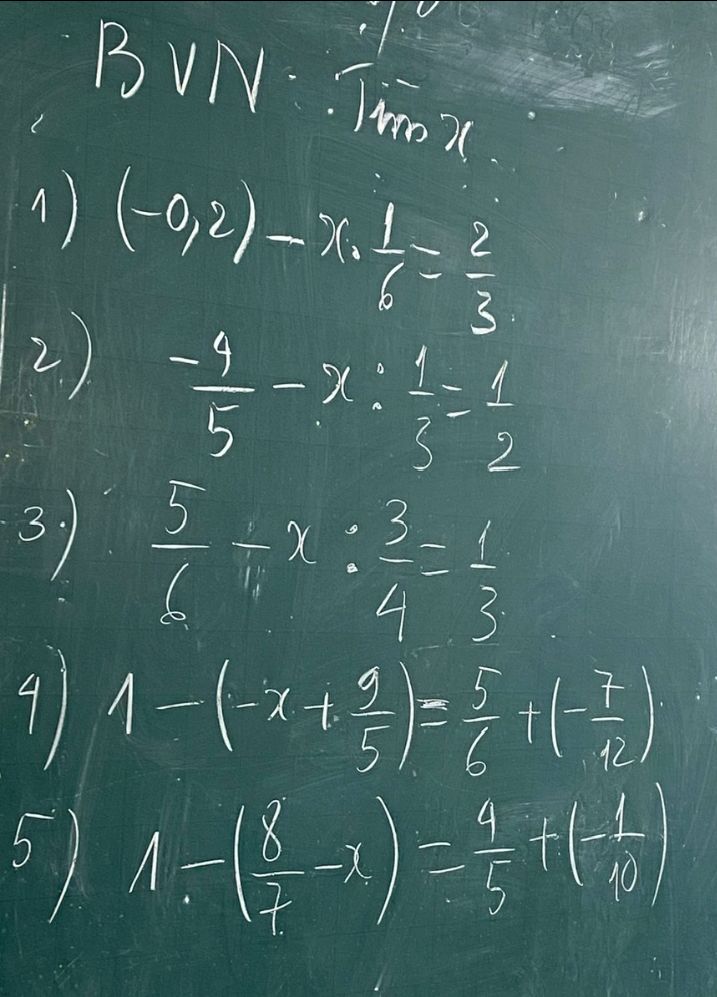 BVN: Tìm x
1) (-0,2) - x. 1/6 = 2/3
2) -4/5 - x : 1/3 = 1/2
3) 5/6 - x : 3/4 = 1/3
4) 1 - (-x + 9/5) = 5/6 + (-7/12)
5) 1 - (8/7 - x) = 4/5 + (-1/10)